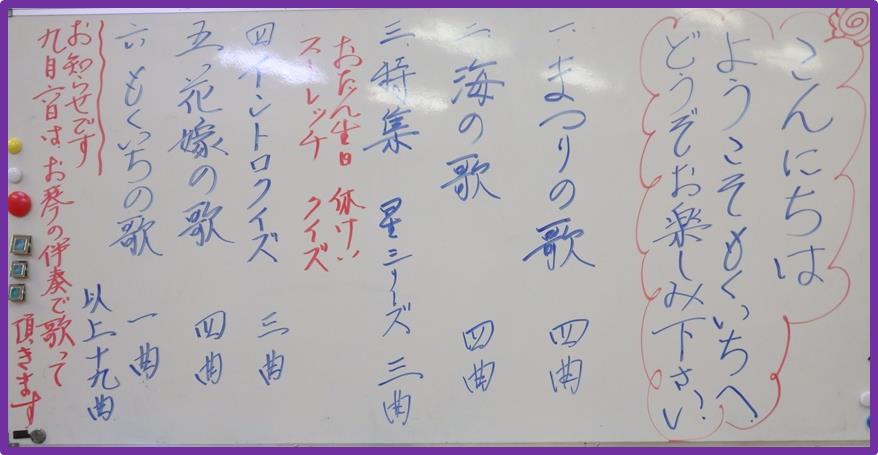 こんにちは
ようこそもくいちへ
どうぞお楽しみ下さい。
一、まつりの歌 四曲
二、海の歌 四曲
三、特集 星シリーズ 三曲
おたん生日 休けい
ストレッチ クイズ
四、イントロクイズ 三曲
五、花嫁の歌 四曲
六、もくいちの歌 一曲
以上十九曲
お知らせです
九月六日はお琴の伴奏で歌って
頂きます